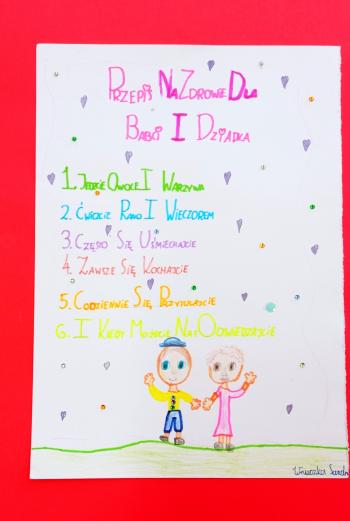 Przepis Na Zdrowie Dla
Babci I Dziadka
1. Jedzcie Owoce I Warzywa
2. Ćwiczcie Rano I Wieczorem
3. Często Się Uśmiechajcie
4. Zawsze Się Kochajcie
5. Codziennie Się Przytulajcie
6. I Kiedy Możecie Nas Odwiedzajcie